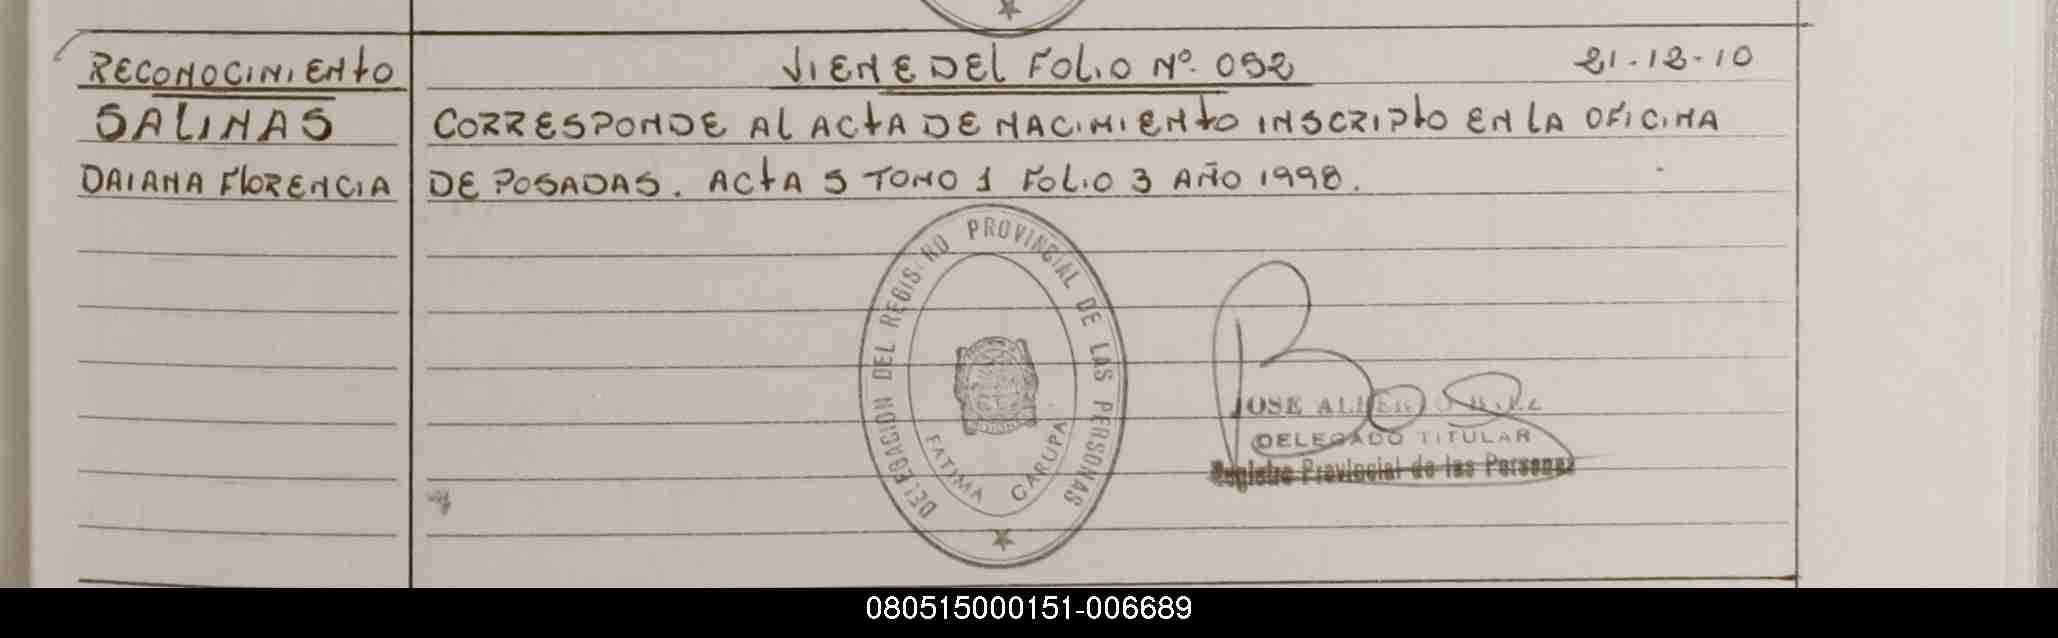 RECONOCIMIENTO
SALINAS
DAIANA FLORENCIA
VIENE DEL FOLIO Nº. 092 21-12-10
CORRESPONDE AL ACTA DE NACIMIENTO INSCRIPTO EN LA OFICINA
DE POSADAS. ACTA 5 TOMO 1 FOLIO 3 AÑO 1998.
DELEGACION DEL REGISTRO PROVINCIAL DE LAS PERSONAS
FATIMA GARUPA
JOSE ALBERTO
DELEGADO TITULAR
Registro Provincial de las Personas
080515000151-006689